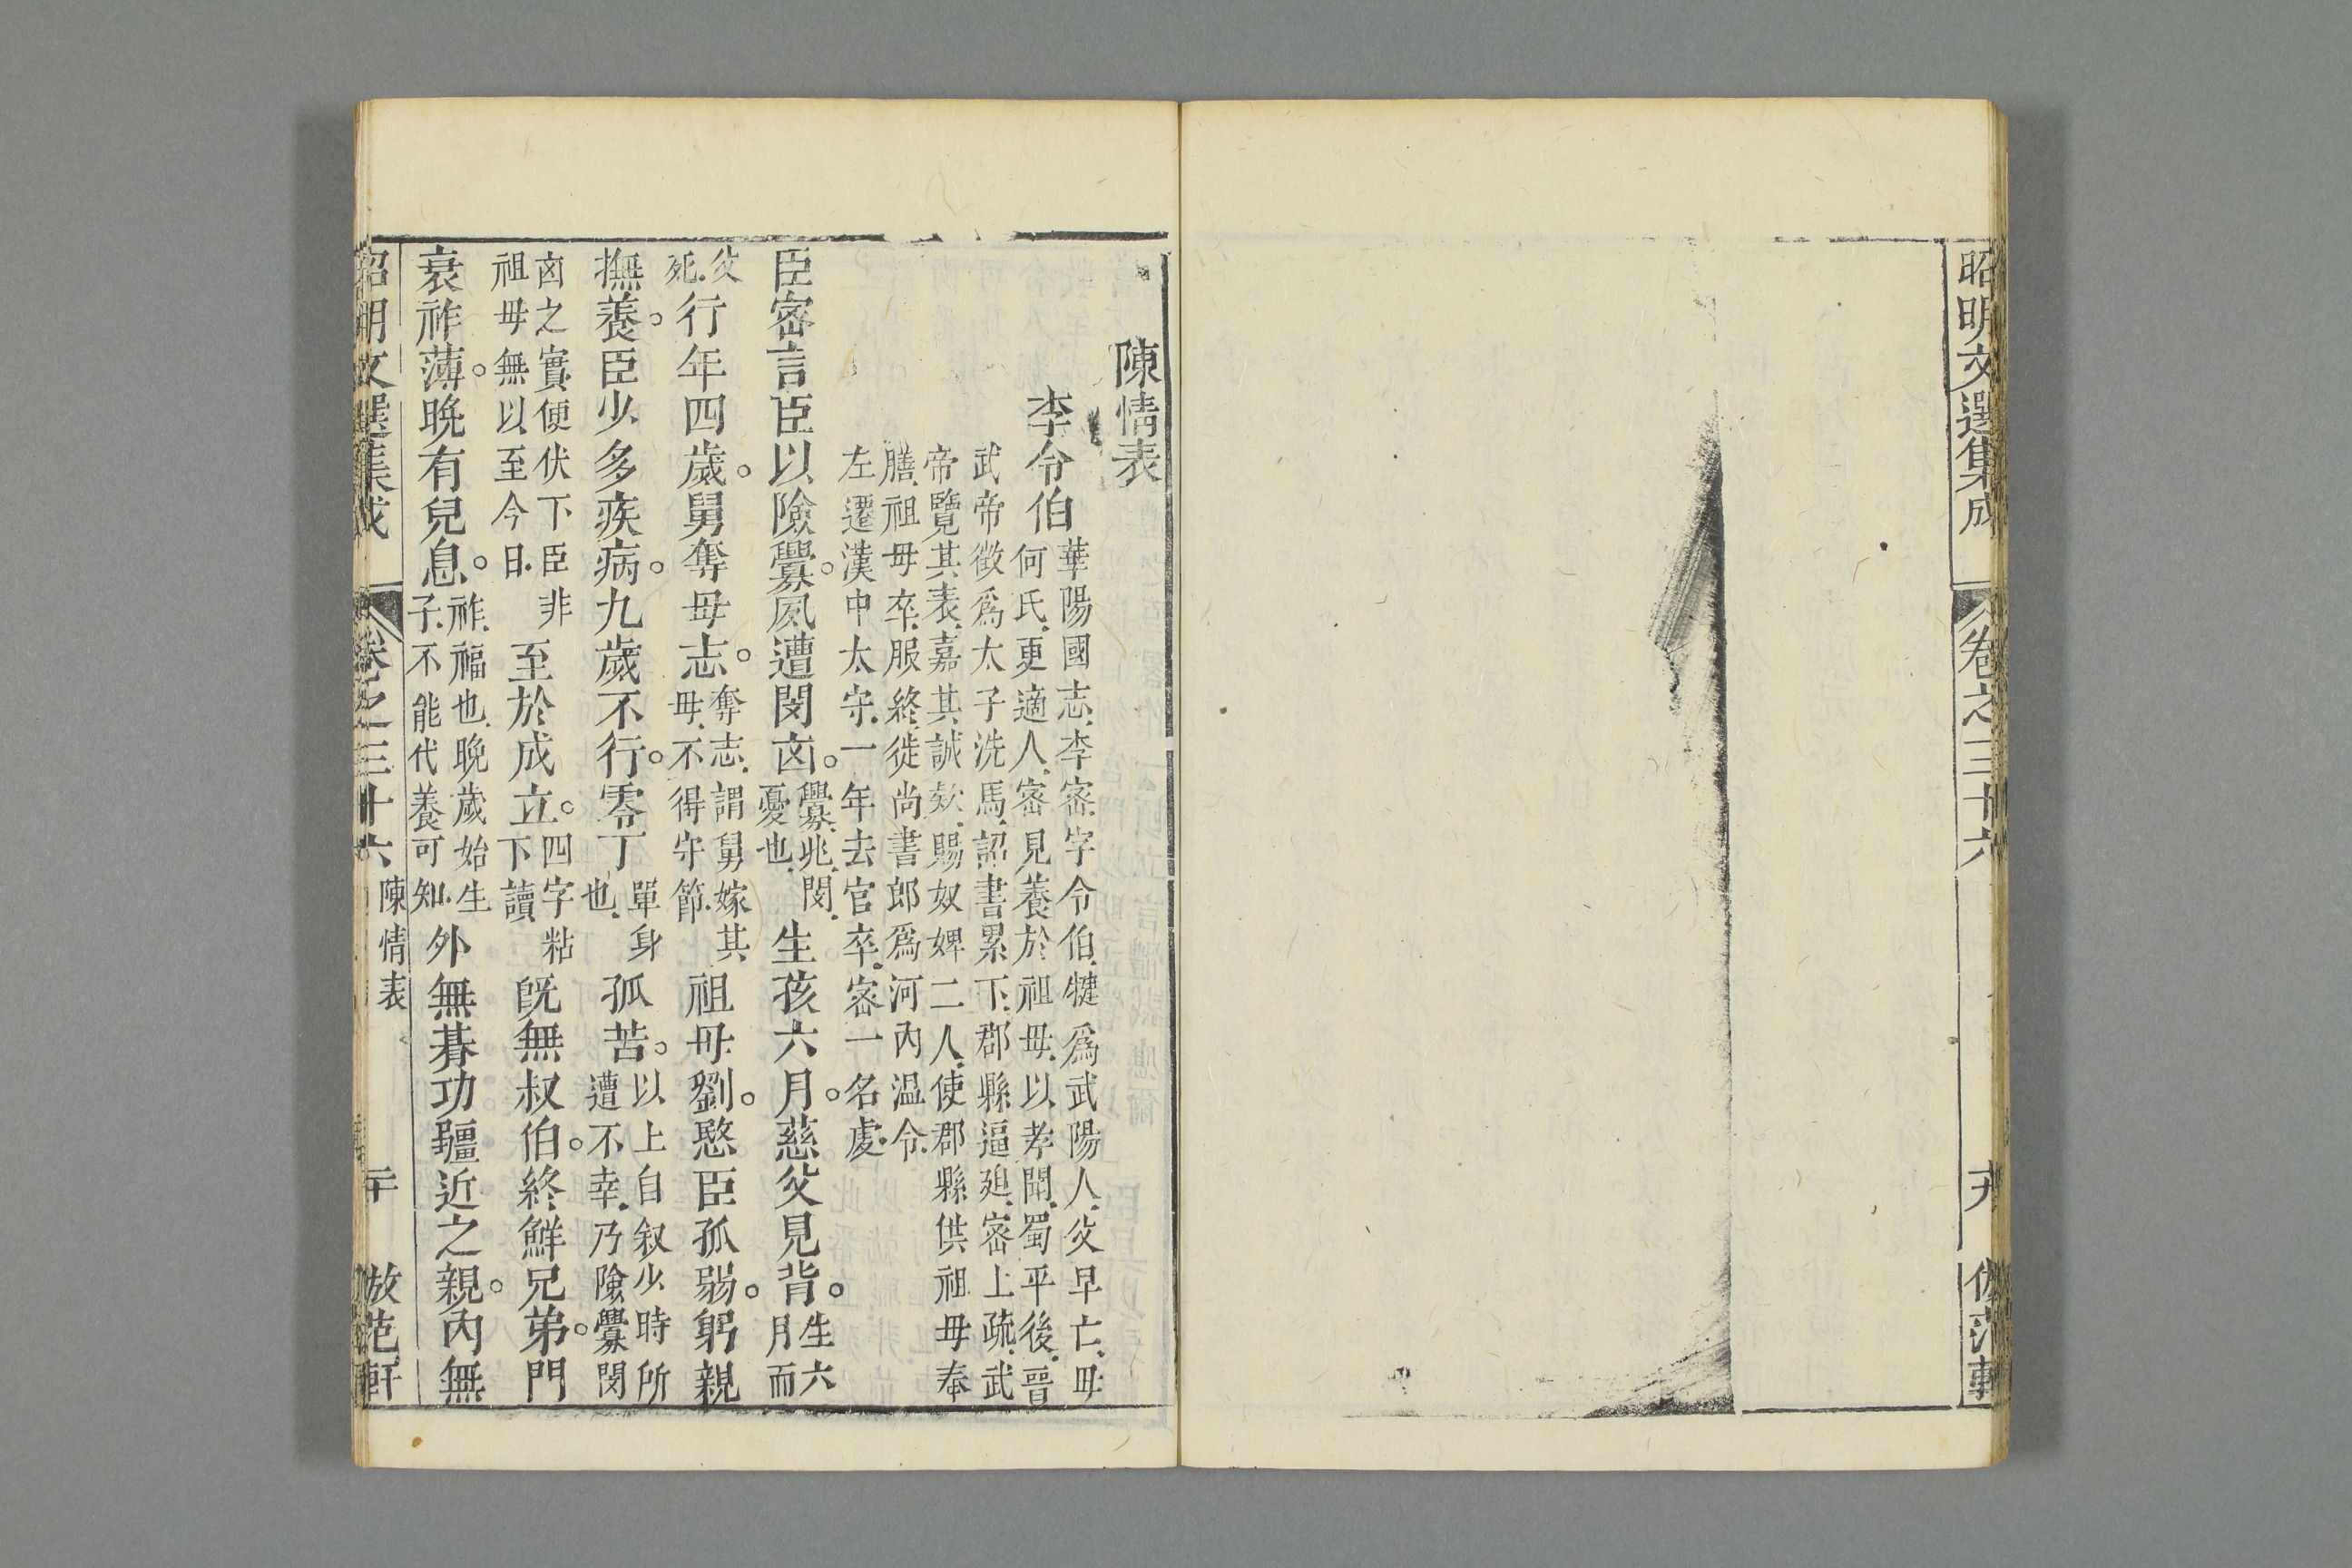 昭明文選集成 卷之三十六 十九 倣范軒
陳情表
李令伯
華陽國志、李密、字令伯、犍爲武陽人、父早亡、毋
何氏、更適人、密見養於祖毋、以孝聞、蜀平後、晉
武帝徵爲太子洗馬、詔書累下、郡縣逼廹、密上疏、武
帝覽其表、嘉其誠欵、賜奴婢二人、使郡縣供祖毋奉
膳、祖毋卒、服終、徙尚書郎、爲河內溫令、
左遷漢中太守、一年去官卒、密一名虔、
臣密言臣以險釁。夙遭閔凶。釁、兆、閔、憂也、生孩六月。慈父見背。生六月而
父死、行年四歲。舅奪毋志。奪志、謂舅嫁其毋、不得守節、祖毋劉。愍臣孤弱。躬親
撫養。臣少多疾病。九歲不行。零丁單身也、孤苦。以上自叙少時所遭不幸、乃險釁閔
凶之實、便伏下臣非祖毋無以至今日、至於成立。四字粘下讀既無叔伯。終鮮兄弟。門
衰祚薄。晚有兒息。祚、福也、晚歲始生子、不能代養可知、外無朞功彊近之親。內無
昭明文選集成 卷之三十六 陳情表 二十 倣范軒